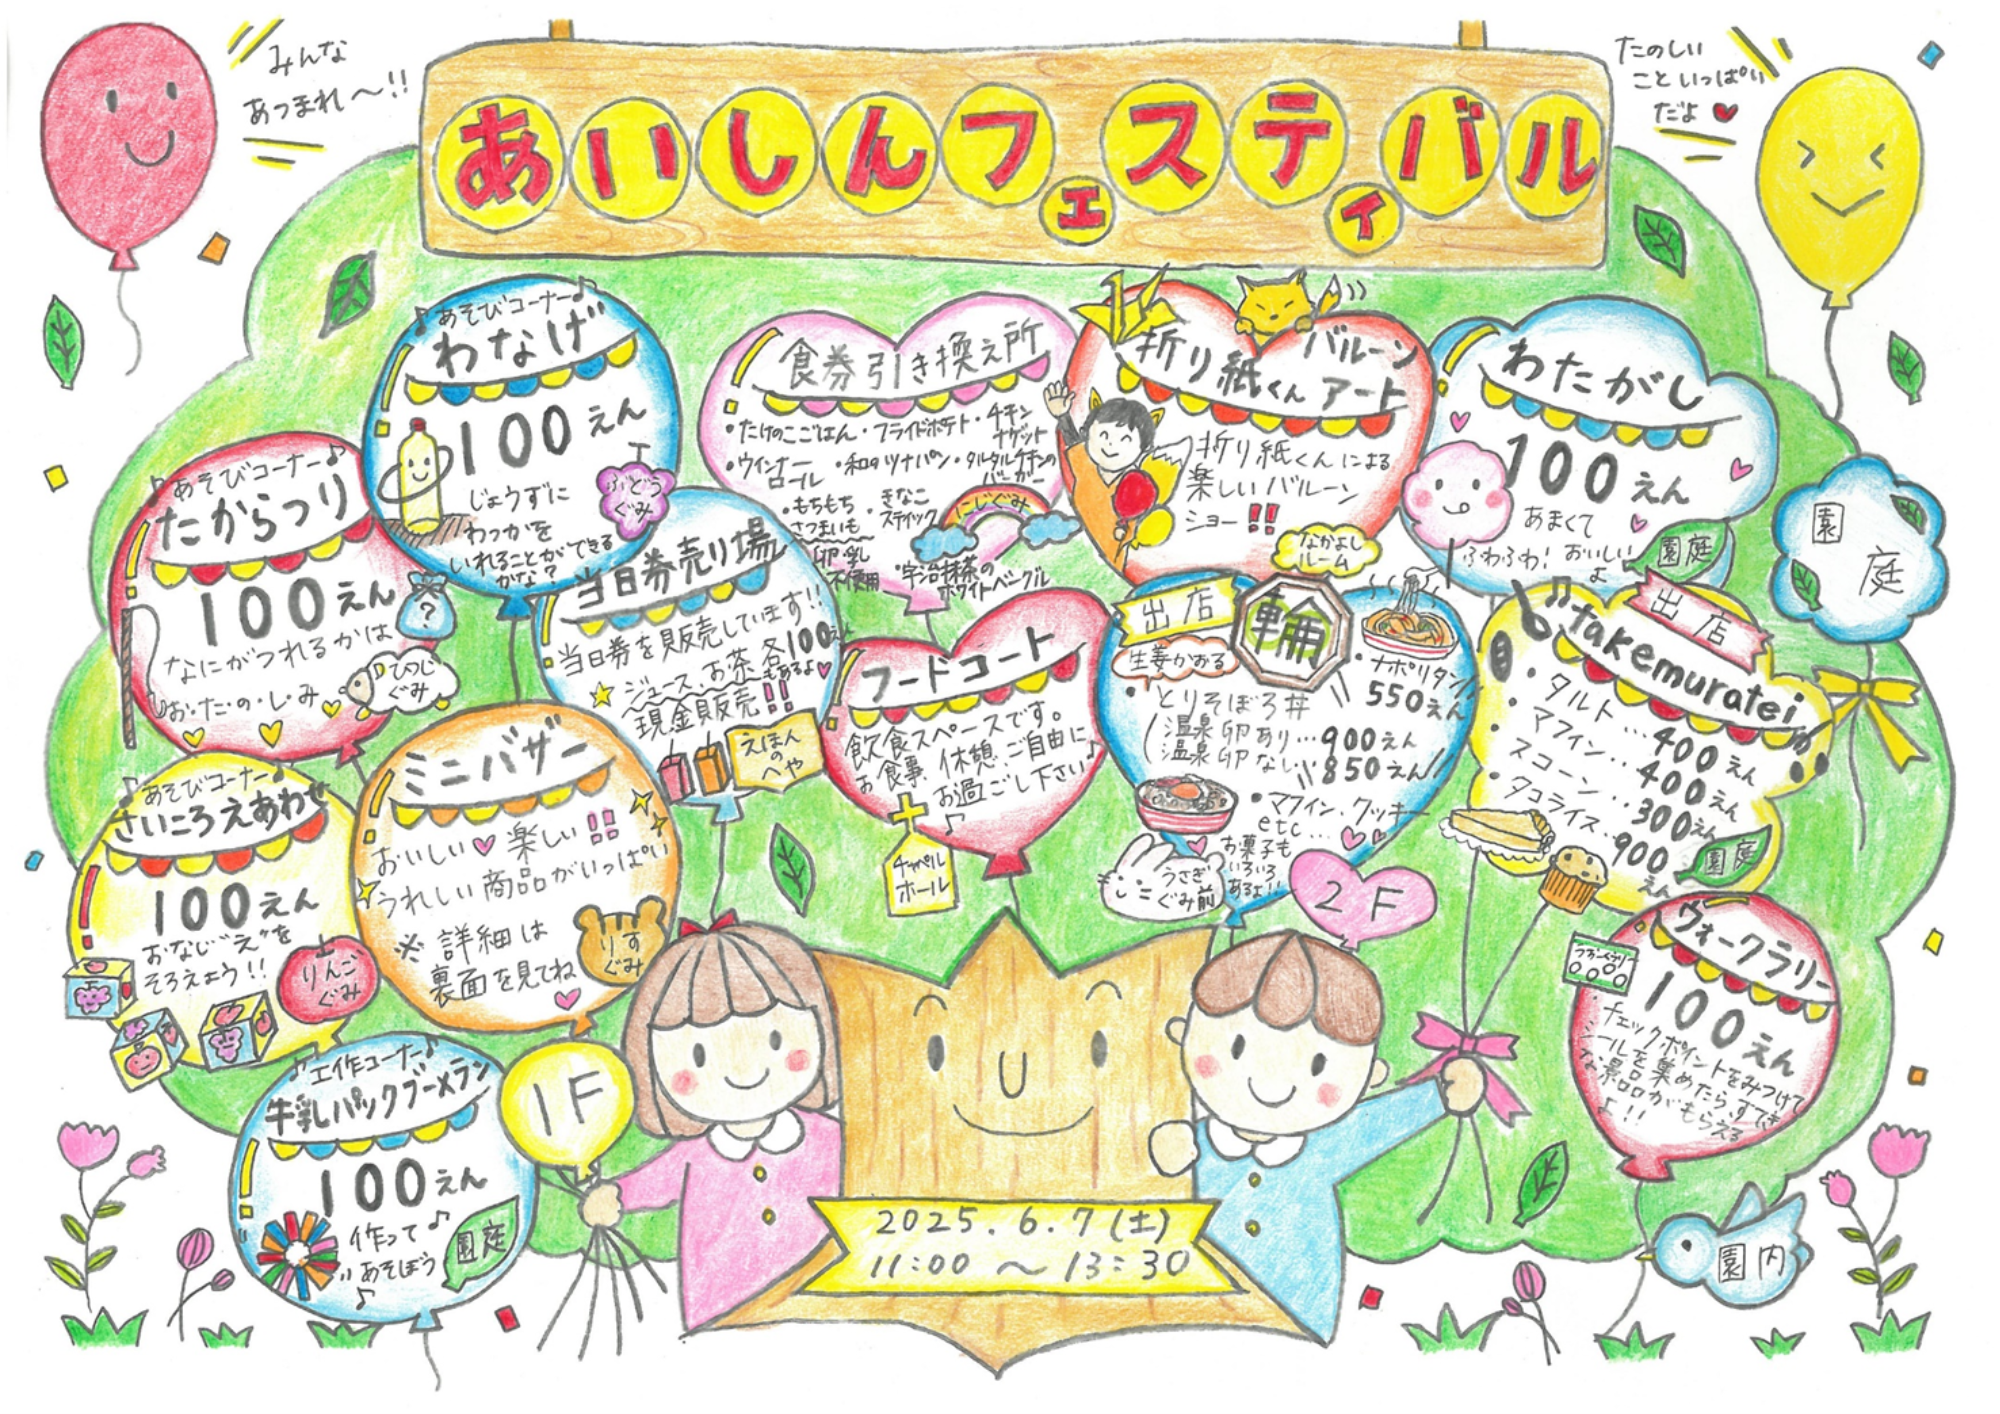 みんな
あつまれ～!!
あいしんフェスティバル
たのしい
こといっぱい
だよ♥
♪あそびコーナー♪
わなげ
100えん
じょうずに
わっかを
いれることができる
かな?
ぶどう
ぐみ
食券引き換え所
・たけのこごはん・フライドポテト・チキン
ナゲット
・ウインナー
ロール
・和のツナパン
・タルタルチキンの
バーガー
・もちもち
さつまいも
・きなこ
スティック
卵・乳
不使用
・宇治抹茶の
ホワイトベーグル
にじぐみ
折り紙くん
バルーン
アート
折り紙くんによる
楽しいバルーン
ショー!!
なかよし
ルーム
わたがし
100えん
あまくて
ふわふわ! おいしい
よ
園庭
園
庭
♪あそびコーナー♪
たからつり
100えん
なにがつれるかは
お・た・の・し・み
?
ひつじ
ぐみ
当日券売り場
当日券を販売しています!!
ジュース、お茶 各100えん
もあるよ♥
現金販売!!
えほん
の
へや
フードコート
飲食スペースです。
お食事、休憩、ご自由に
お過ごし下さい♪
チャペル
ホール
出店
輪
生姜かおる
・とりそぼろ丼
温泉卵あり…900えん
温泉卵なし…850えん
・ナポリタン
550えん
・マフィン、クッキー
etc…
お菓子も
いろいろ
あるよ!!
うさぎ
ぐみ前
2F
出店
takemuratei
・タルト…400えん
・マフィン…400えん
・スコーン…300えん
・タコライス…900
えん
園庭
♪あそびコーナー♪
さいころえあわせ
100えん
おなじ"え"を
そろえよう!!
りんご
ぐみ
ミニバザー
おいしい♥楽しい!!
うれしい商品がいっぱい
※詳細は
裏面を見てね
りす
ぐみ
ウォークラリー
100えん
チェックポイントをみつけて
シールを集めたら、すてき
な景品がもらえる
♪!!
園内
♪工作コーナー♪
牛乳パックブーメラン
100えん
作って♪
あそぼう
♪
園庭
1F
2025.6.7(土)
11:00～13:30